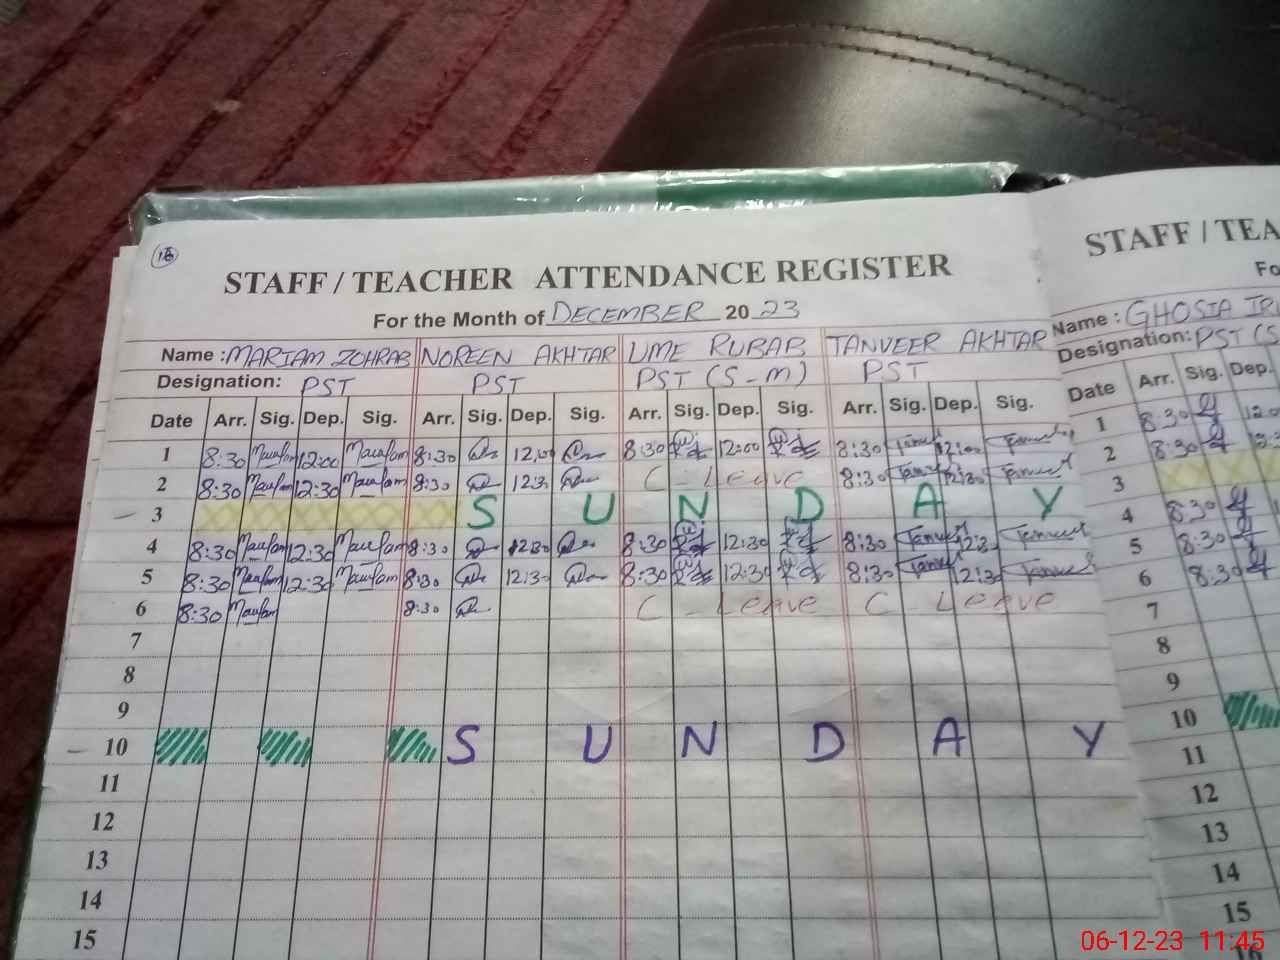 16
STAFF / TEACHER ATTENDANCE REGISTER
For the Month of DECEMBER 20 23
Name : MARIAM ZOHRAB NOREEN AKHTAR UME RUBAB TANVEER AKHTAR
Designation: PST PST PST (S-m) PST
Date Arr. Sig. Dep. Sig. Arr. Sig. Dep. Sig. Arr. Sig. Dep. Sig. Arr. Sig. Dep. Sig.
1 8:30 Maufam 12:00 Maufam 8:30 12:00 8:30 12:00 8:30 Tanveer 12:00 Tanveer
2 8:30 Maufam 12:30 Maufam 8:30 12:30 C - Leave 8:30 Tanveer 12:30 Tanveer
3 S U N D A Y
4 8:30 Maufam 12:30 Maufam 8:30 12:30 8:30 12:30 8:30 Tanveer 12:30 Tanveer
5 8:30 Maufam 12:30 Maufam 8:30 12:30 8:30 12:30 8:30 Tanveer 12:30 Tanveer
6 8:30 Maufam 8:30 C - Leave C - Leave
7
8
9
10 S U N D A Y
11
12
13
14
15
STAFF / TEA
Fo
Name : GHOSIA IR
Designation: PST (S
Date Arr. Sig. Dep.
1 8:30 12:0
2 8:30
3
4 8:30
5 8:30
6 8:30
7
8
9
10
11
12
13
14
15
16
06-12-23 11:45